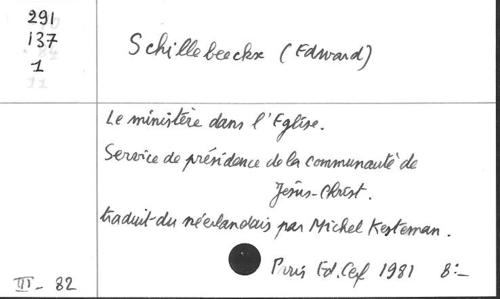 291
137
1
Schillebeeckx (Edward)
Le ministère dans l'Eglise.
Service de présidence de la communauté de
Jésus-Christ.
traduit du néerlandais par Michel Kesteman.
Paris Ed. Cerf 1981 8:-
III - 82